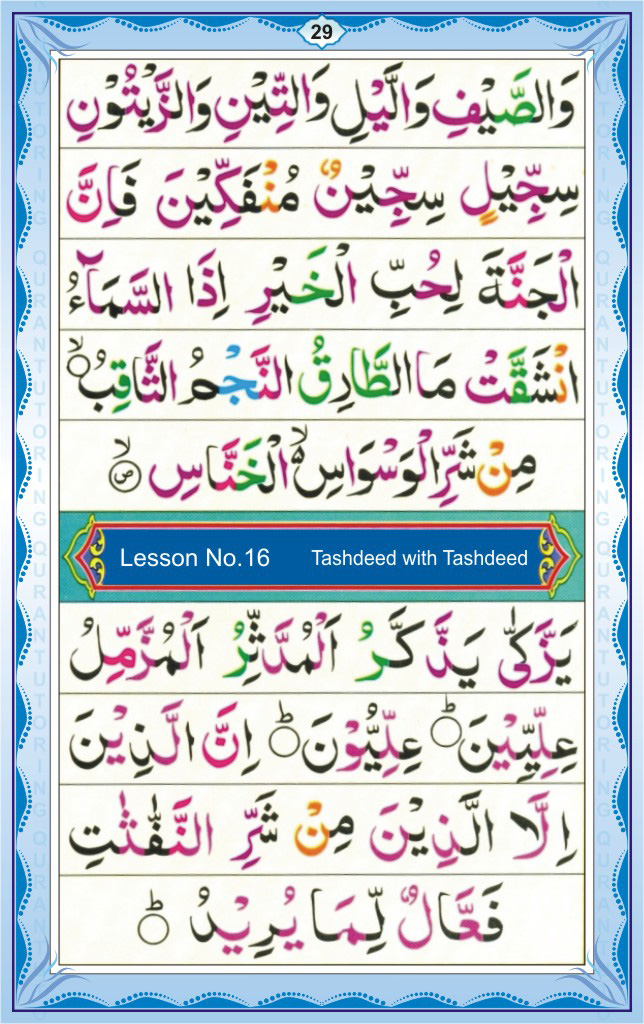 29
وَالصَّيْفِ وَالَّيْلِ وَالتِّيْنِ وَالزَّيْتُوْنِ
سِجِّيْلٍ سِجِّيْنٌ مُنْفَكِّيْنَ فَاِنَّ
الْجَنَّةَ لِحُبِّ الْخَيْرِ اِذَا السَّمَآءُ
انْشَقَّتْ مَا الطَّارِقُ النَّجْمُ الثَّاقِبُ ۙ
مِنْ شَرِّ الْوَسْوَاسِ ۙ الْخَنَّاسِ ۙ ص
Lesson No.16 Tashdeed with Tashdeed
يَزَّكّٰى يَذَّكَّرُ اَلْمُدَّثِّرُ اَلْمُزَّمِّلُ
عِلِّيِّيْنَ ؕ عِلِّيُّوْنَ ؕ اِنَّ الَّذِيْنَ
اِلَّا الَّذِيْنَ مِنْ شَرِّ النَّفّٰثٰتِ
فَعَّالٌ لِّمَا يُرِيْدُ ؕ
QURANTUTORING QURANTUTORING
QURANTUTORING QURANTUTORING